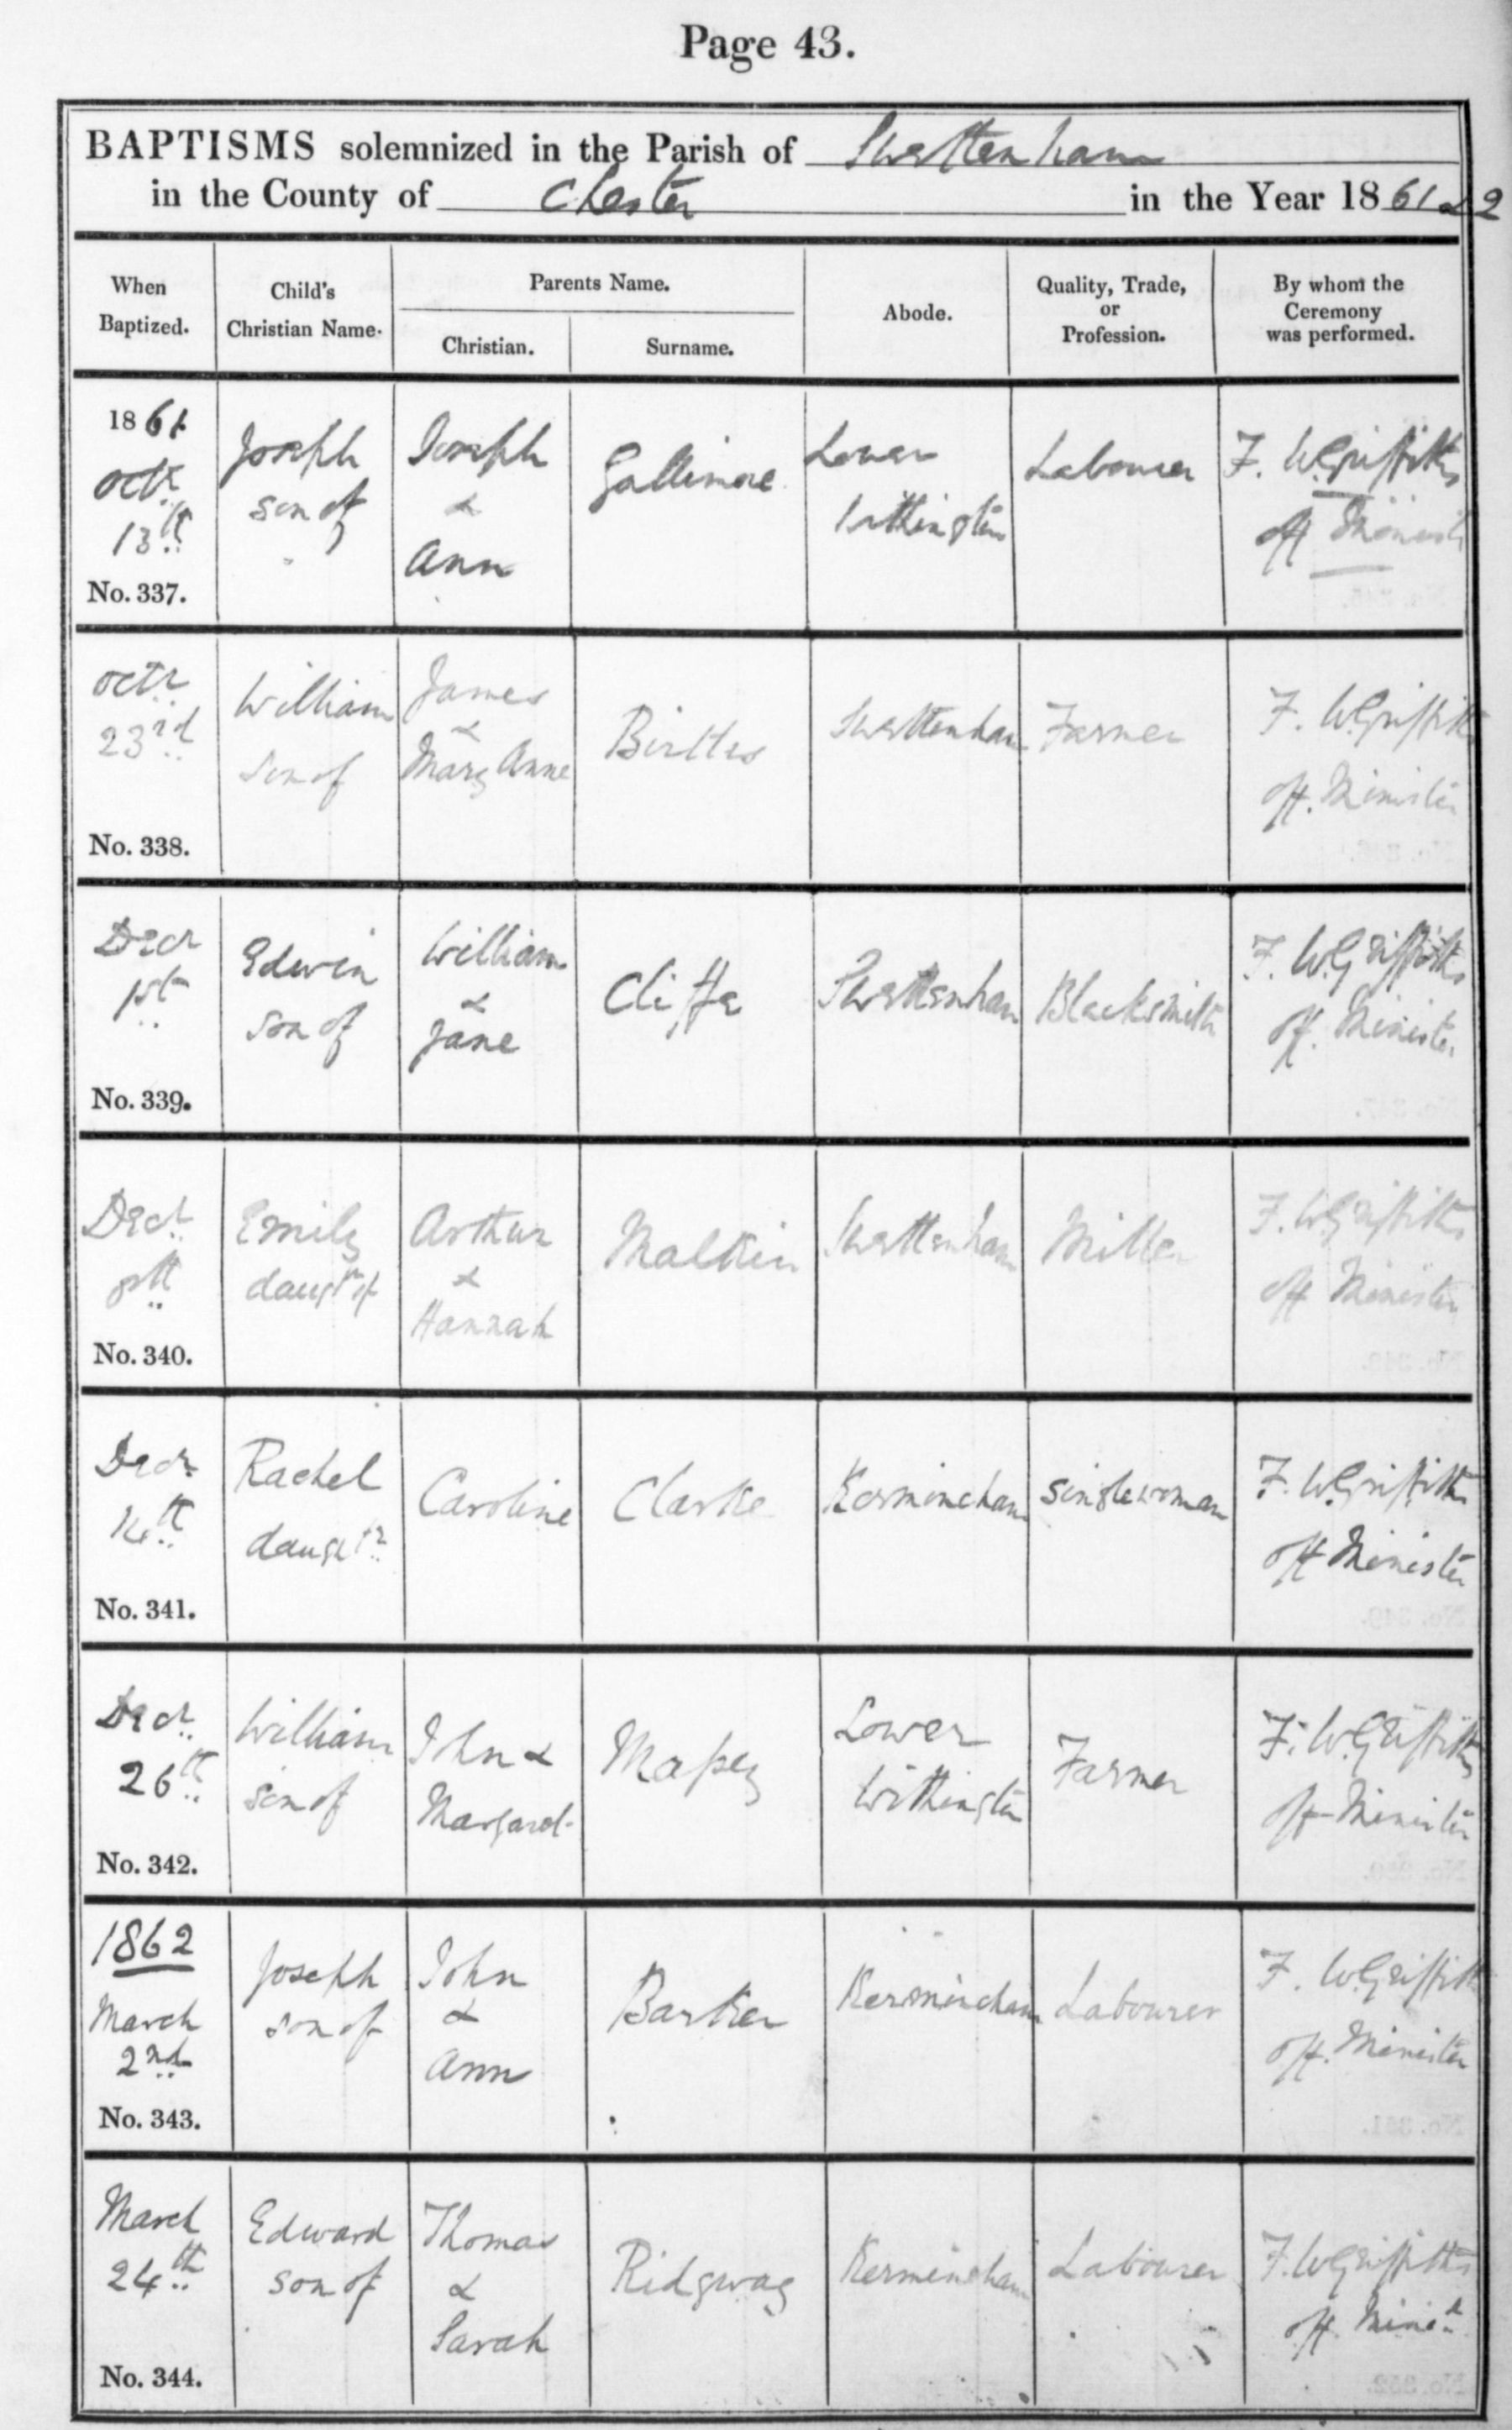 Page 43.
BAPTISMS solemnized in the Parish of Swettenham
in the County of Chester in the Year 1861 & 2
When
Baptized.
Child's
Christian Name.
Parents Name.
Christian.
Surname.
Abode.
Quality, Trade,
or
Profession.
By whom the
Ceremony
was performed.
1861
Octr
13th
No. 337.
Joseph
son of
Joseph
&
Ann
Gallimore
Lower
Withington
Labourer
F. W Griffiths
off Minist
Octr
23rd
No. 338.
William
Son of
James
&
Mary Anne
Birtles
Swettenham
Farmer
F. W Griffiths
off. Minister
Decr
1st
No. 339.
Edwin
son of
William
&
Jane
Cliffe
Swettenham
Blacksmith
F. W Griffiths
off. Minister
Decr
8th
No. 340.
Emily
daugtr of
Arthur
&
Hannah
Malkin
Swettenham
Miller
F. W Griffiths
off Minister
Decr
No. 341.
Rachel
daughtr
Caroline
Clarke
Kermincham
Singlewoman
F. W Griffiths
off Minister
Decr
26th
No. 342.
William
son of
John &
Margaret
Lower
Withington
Farmer
F. W Griffiths
off Minister
1862
March
2nd
No. 343.
Joseph
son of
John
&
Ann
Barker
Kermincham
Labourer
F. W Griffiths
off. Minister
March
24th
No. 344.
Edward
son of
Thomas
&
Sarah
Ridgway
Kermincham
Labourer
F. W Griffiths
off. Minis